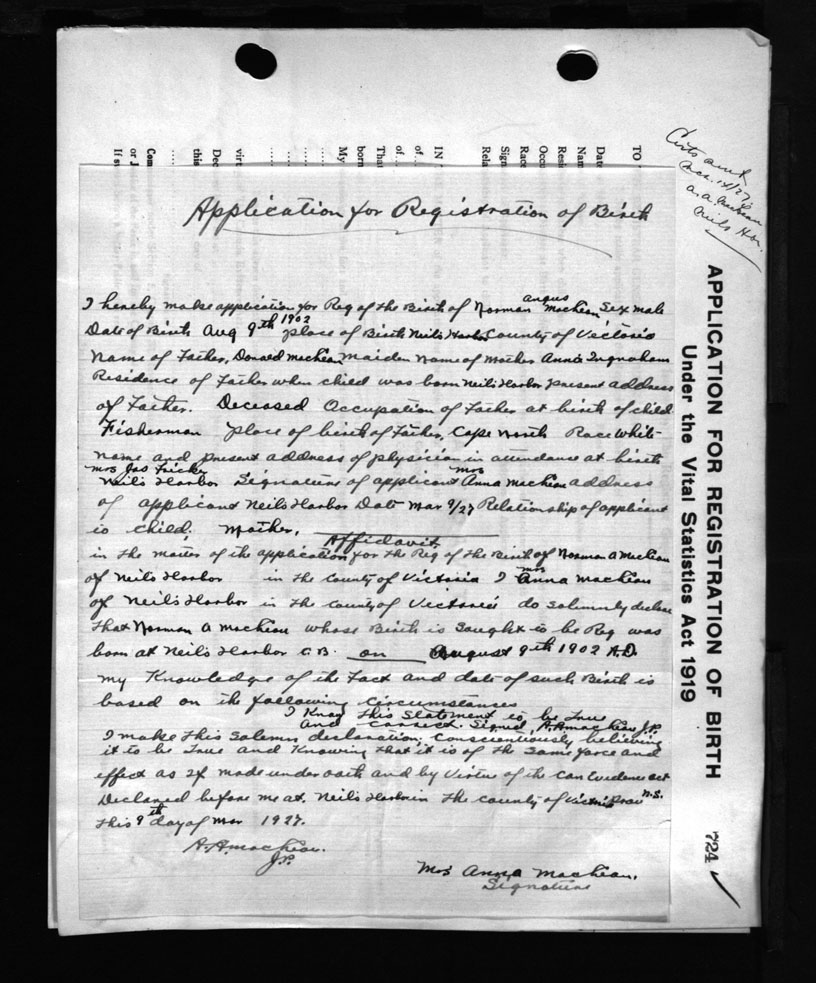 TO
Date
Nam
Resi
Occu
Race
Sign
Rela
IN
of
of
That
born
My
virt
Dec
this
Com
or J
If s
Certs sent
Mar. 14/27
Neils Hbr.
Application for Registration of Birth
I hereby make application for Reg of the Birth of Norman angus MacLean Sex male
Date of Birth Aug 9th 1902 place of Birth Neils Harbor County of Victoria
Name of Father, Donald MacLean Maiden Name of Mother Anna Ingraham
Residence of Father when child was born Neils Harbor present address
of Father. Deceased Occupation of Father at birth of child
Fisherman place of birth of Father, Cape North Race White
Name and present address of physician in attendance at birth
Mrs Jas Fricker
Neils Harbor Signature of applicant Mrs Anna MacLean address
of applicant Neils Harbor Date Mar 9/27 Relationship of applicant
to child, Mother,
Affidavit
in the matter of the application for the Reg of the Birth of Norman A MacLean
of Neils Harbor in the county of Victoria I Mrs Anna MacLean
of Neils Harbor in the county of Victoria do solemnly declare
that Norman A MacLean whose Birth is sought to be Reg was
born at Neils Harbor C.B. on August 9th 1902 A.D.
My Knowledge of the Fact and date of such Birth is
based on the following circumstances
I Know this Statement to be True
and correct. Signed, A.A. MacLean J.P.
I make this solemn declaration, conscientiously believing
it to be True and Knowing that it is of the same force and
effect as if made under oath and by Virtue of the Can Evidence act
Declared before me at, Neils Harbor in the county of Victoria Prov N.S.
this 9th day of Mar 1927.
A.A. MacLean.
J.P.
Mrs Anna MacLean.
Signature
APPLICATION FOR REGISTRATION OF BIRTH
Under the Vital Statistics Act 1919
724